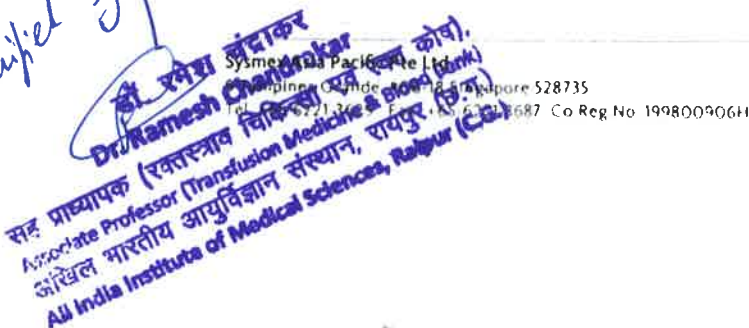 डॉ. रमेश चंद्राकर
Dr. Ramesh Chandrakar
सह प्राध्यापक (रक्तस्त्राव चिकित्सा एवं रक्त कोष),
Associate Professor (Transfusion Medicine & Blood Bank)
अखिल भारतीय आयुर्विज्ञान संस्थान, रायपुर (छ.ग.)
All India Institute of Medical Sciences, Raipur (C.G.)
Sysmex Asia Pacific Pte Ltd
Singapore 528735
Co Reg No 199800906H